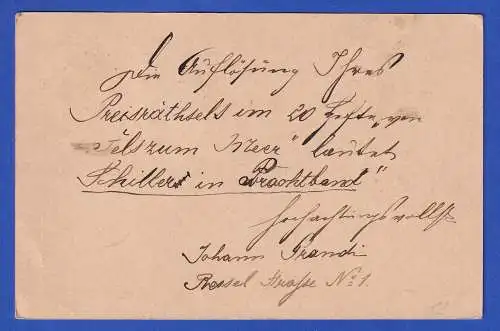 Die Auflösung Ihres
Preisräthsels im 20 Hefte „von
Fels zum Meer“ lautet
Schiller in Prachtband“
hochachtungsvollst
Johann Prandi
Ressel Straße No 1.